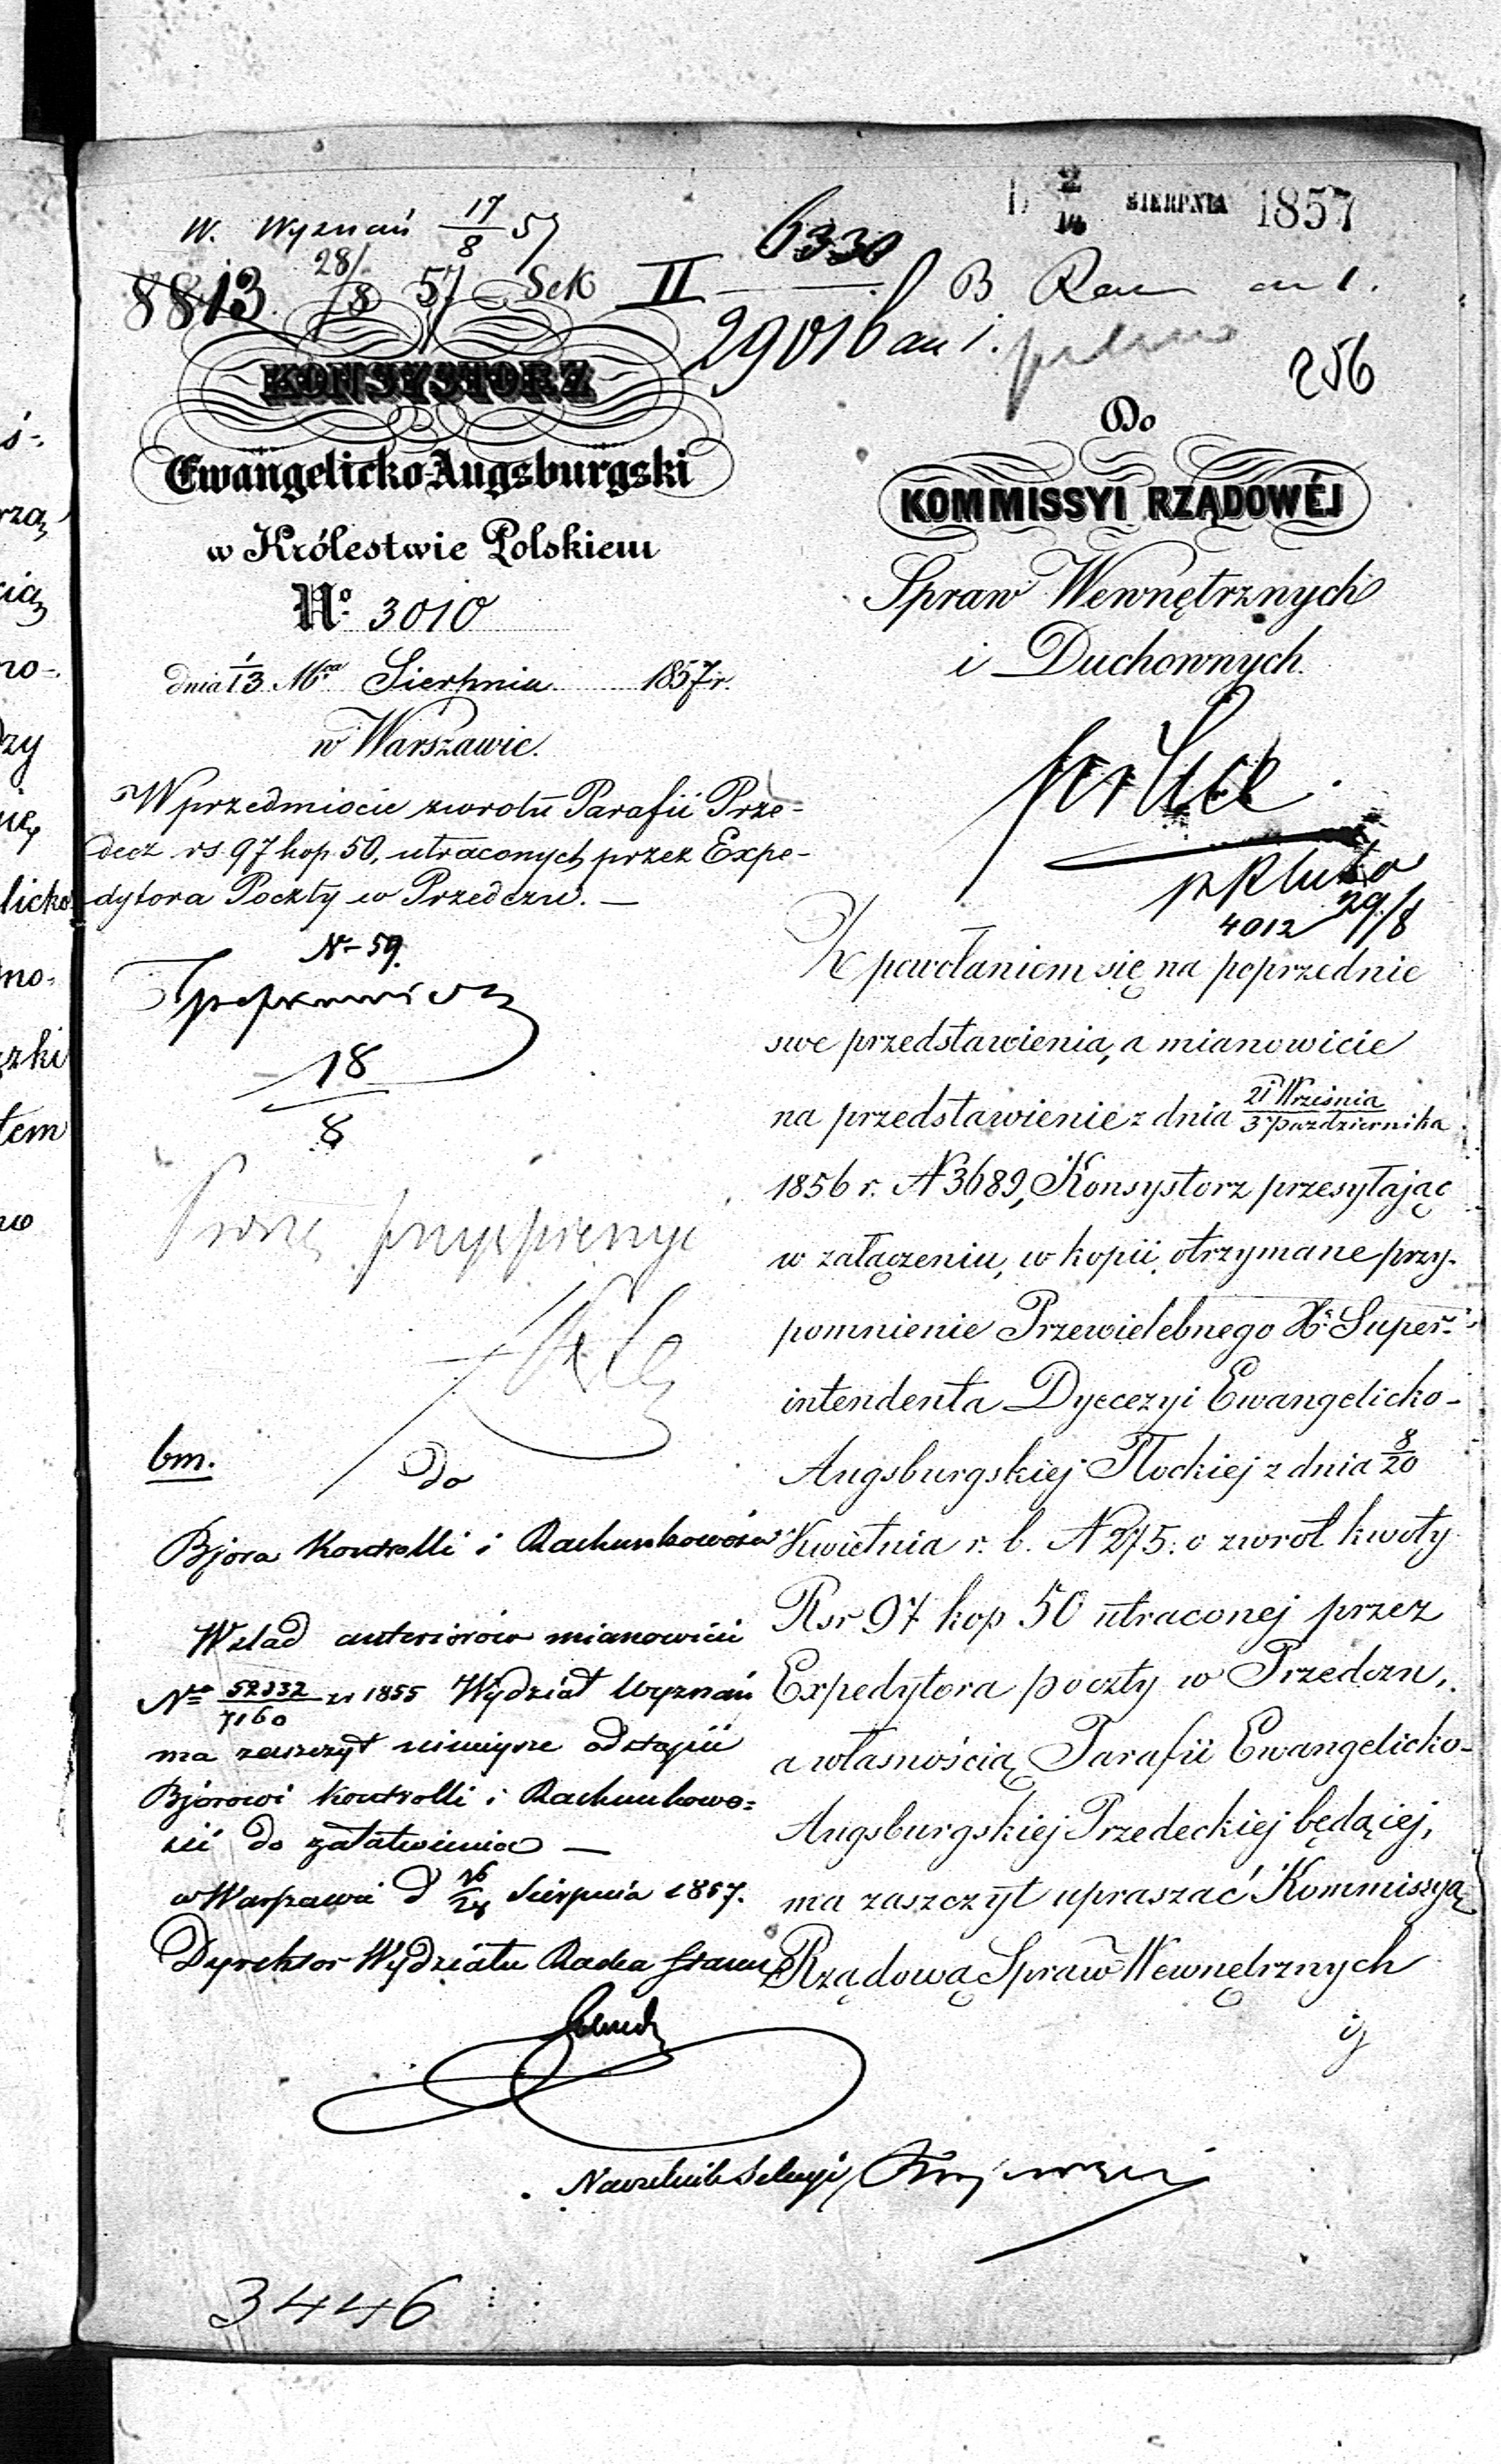 W. Wyznań 17/8 57
8813 28/8 57 Sek II 6330
B
29016 an 1.
2/14 SIERPNIA 1857
256
KONSYSTORZ
Ewangelicko Augsburgski
w Królestwie Polskiem
No. 3010
dnia 1/13 Mca Sierpnia 1857 r.
w Warszawie.
W przedmiocie zwrotu Parafii Prze-
decz rs 97 kop. 50, utraconych przez Expe-
dytora Poczty w Przedczu. —
N- 59.
18
8
Proszę
bm.
Do
Bjóra Kontrolli i Rachunkowości
W ślad anteriorów mianowicie
No 52332/7160 z r 1855 Wydział Wyznań
ma zaszczyt niniejsze odstąpić
Bjórowi Kontrolli i Rachunkowo=
ści do załatwienia —
w Warszawie d 16/28 Sierpnia 1857.
Dyrektor Wydziału Radca Stanu
Naczelnik Sekcyi
3446
Do
KOMMISSYI RZĄDOWÉJ
Spraw Wewnętrznych
i Duchownych.
4012 29/8
Z powołaniem się na poprzednie
swe przedstawienia, a mianowicie
na przedstawienie z dnia 21 Września/3 Października
1856 r. N 3689, Konsystorz przesyłając
w załączeniu, w kopii, otrzymane przy-
pomnienie Przewielebnego Xs. Super-
intendenta Dyecezyi Ewangelicko-
Augsburgskiej Płockiej z dnia 8/20
Kwietnia r. b. N 275. o zwrot kwoty
Rsr 97 kop 50 utraconej przez
Expedytora poczty w Przedczu,
a własnością Parafii Ewangelicko-
Augsburgskiej Przedeckiej będącej,
ma zaszczyt upraszać Kommissyą
Rządową Spraw Wewnętrznych
i